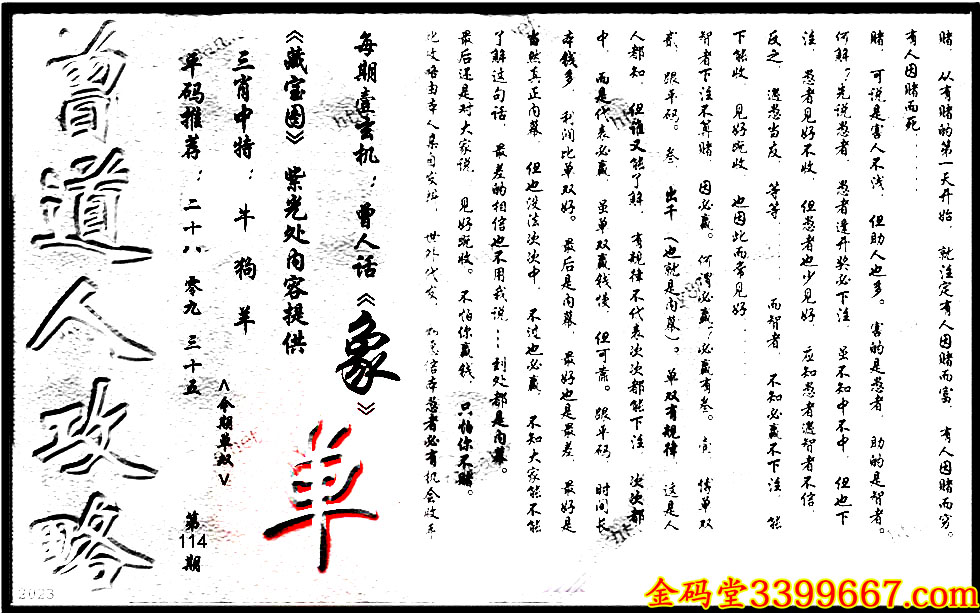 赌，从有赌的第一天开始，就注定有人因赌而富，有人因赌而穷。
有人因赌而死．．．．．．
赌，可说是害人不浅，但助人也多。害的是愚者，助的是智者。
何解？先说愚者，愚者逢开奖必下注，虽不知中不中，但也下
注，愚者见好不收，但愚者也少见好，应知愚者遇智者不信，
反之，遇愚当度，等等．．．．．．而智者，不知必赢不下注，能
下能收，见好就收，也因此而常见好．．．．．．
智者下注不算赌，因必赢。何谓必赢？必赢有叁。壹，博单双
贰，跟平码。叁，出千（也就是内幕）。单双有规律，这是人
人都知，但谁又能了解，有规律不代表次次都能下注，次次都
中，而是代表必赢，虽单双赢钱慢，但可靠。跟平码，时间长
本钱多，利润比单双好。最后是内幕，最好也是最差，最好是
当然真正内幕，但也没法次次中，不过也必赢，不知大家能不
了解这句话，最差的相信也不用我说：…到处都是内幕。
最后还是对大家说，见好就收。不怕你赢钱，只怕你不赌。
每期壹玄机：曾人话《象》
《藏宝图》紫光处内容提供
三肖中特：牛 狗 羊
单码推荐：二十八 零九 三十五
<今期单双>
单
第
114
期
曾道人攻略
2023
金码堂3399667.com